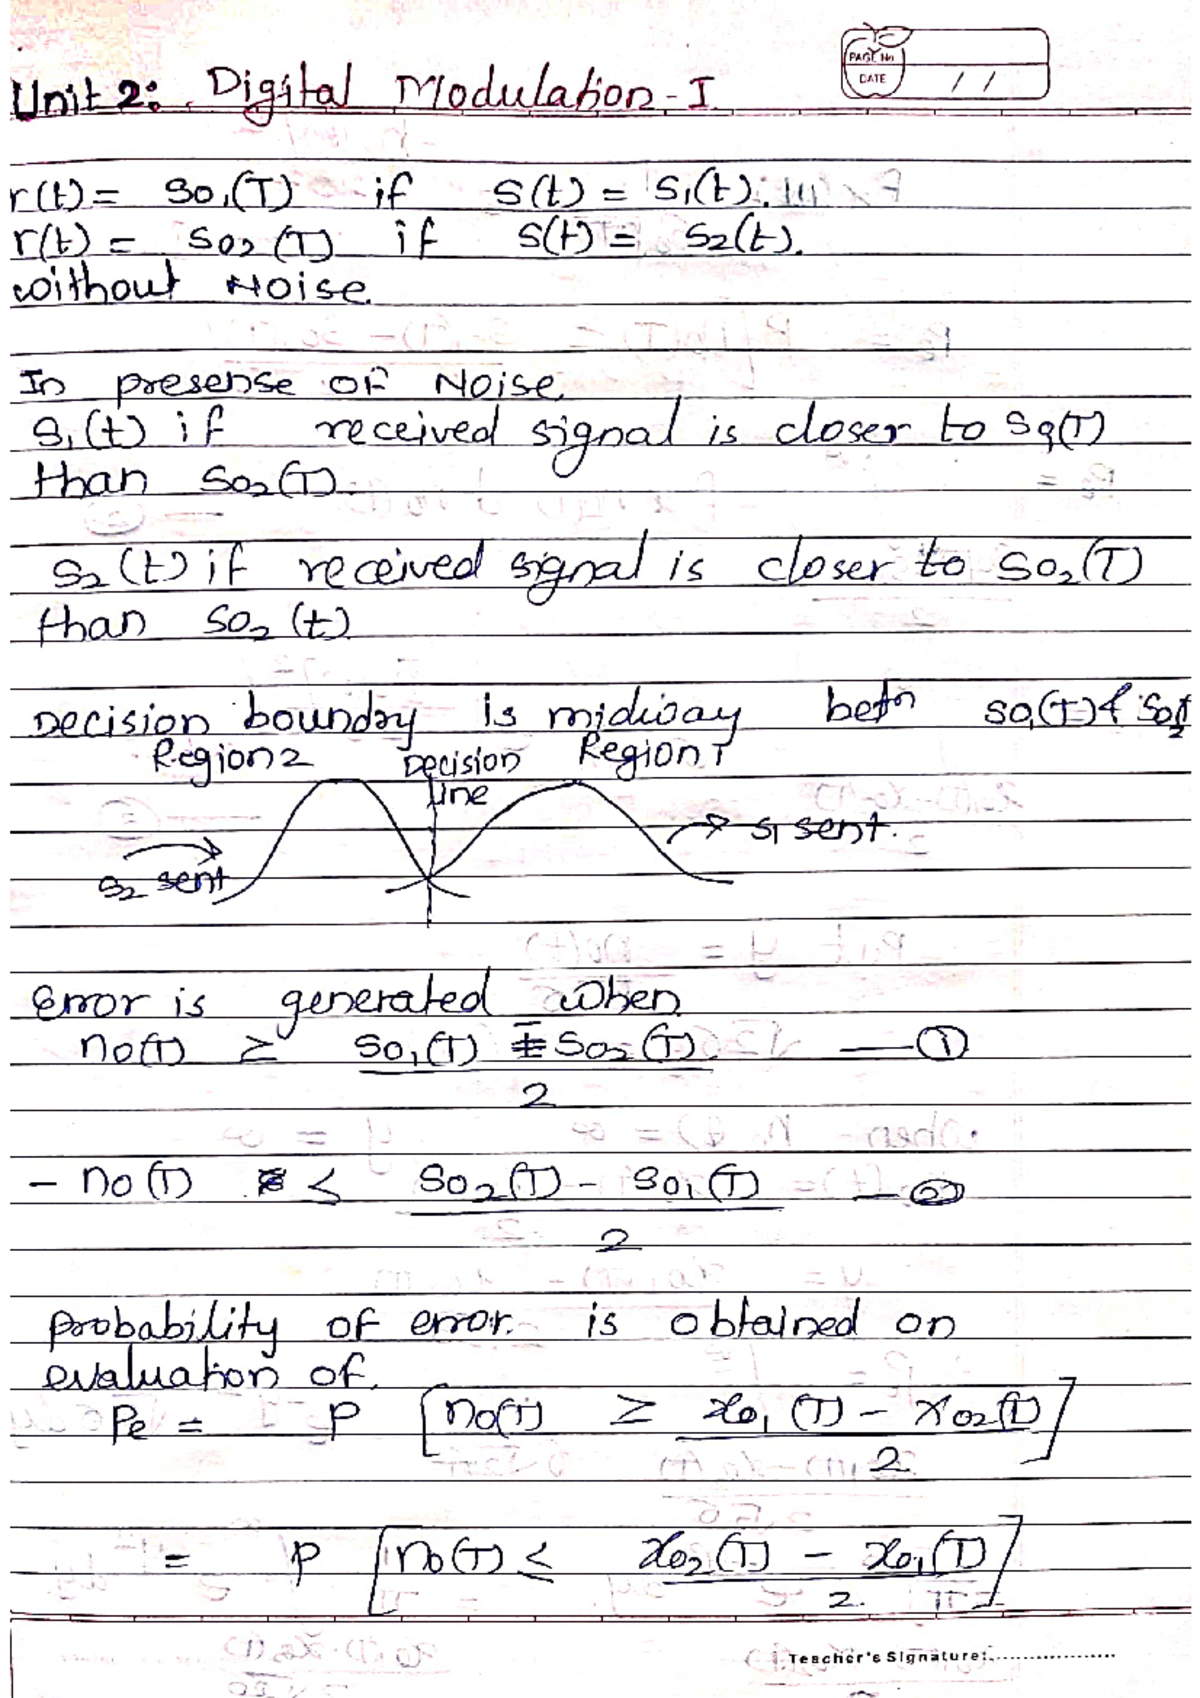 PAGE No
DATE / /
Unit 2: Digital Modulation - I
r(t) = So1(T) if S(t) = S1(t).
r(t) = So2(T) if S(t) = S2(t).
without Noise.
In presense of Noise
S1(t) if received signal is closer to So1(T)
than So2(T).
S2(t) if received signal is closer to So2(T)
than So2(t)
Decision boundry is midway betn So1(T) & So2T
Region 2 Decision Region 1
Line
S1 sent.
S2 sent
Error is generated when
no(T) ≥ So1(T) - So2(T) — ①
2
- no(T) < So2(T) - So1(T) — ②
2
probability of error. is obtained on
evaluation of.
Pe = P [no(T) ≥ xo1(T) - xo2(T)]
2
= P [no(T) ≤ xo2(T) - xo1(T)]
2.
Teacher's Signature:..................